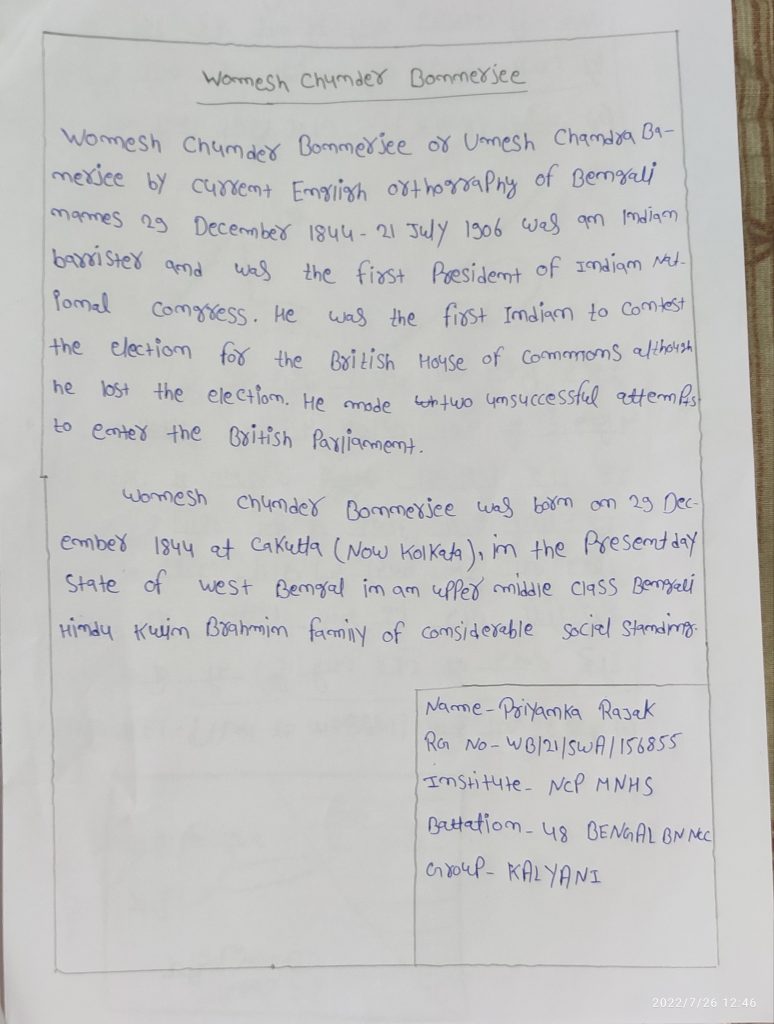 Womesh Chunder Bonnerjee
Womesh Chunder Bonnerjee or Umesh Chandra Ba-
nerjee by current English orthography of Bengali
names 29 December 1844 - 21 July 1906 was an Indian
barrister and was the first President of Indian Nat-
ional Congress. He was the first Indian to contest
the election for the British House of Commons although
he lost the election. He made two unsuccessful attempts
to enter the British Parliament.
Womesh Chunder Bonnerjee was born on 29 Dec-
ember 1844 at Cakutta (Now Kolkata), in the Present day
State of west Bengal in an upper middle class Bengali
Hindu Kulin Brahmin family of considerable social standing.
Name - Priyanka Rajak
RG No - WB/21/SWA/156855
Institute - NCP MNHS
Battation - 48 BENGAL BN NCC
Group - KALYANI
2022/7/26 12:46